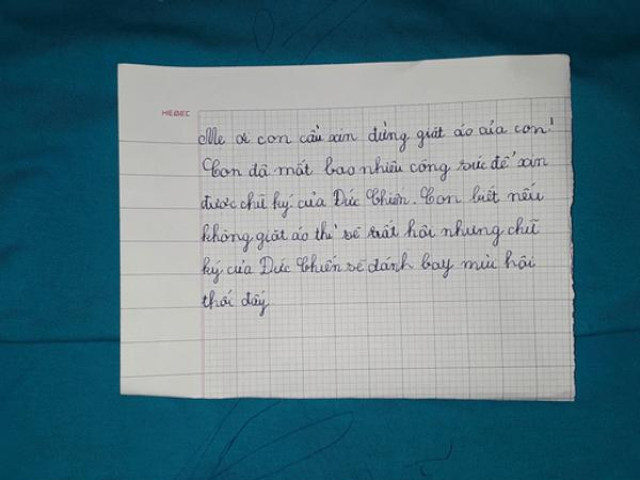 HEBEC
Mẹ ơi con cầu xin đừng giặt áo của con!
Con đã mất bao nhiêu công sức để xin
được chữ ký của Đức Chiến. Con biết nếu
không giặt áo thì sẽ rất hôi nhưng chữ
ký của Đức Chiến sẽ đánh bay mùi hôi
thối đấy